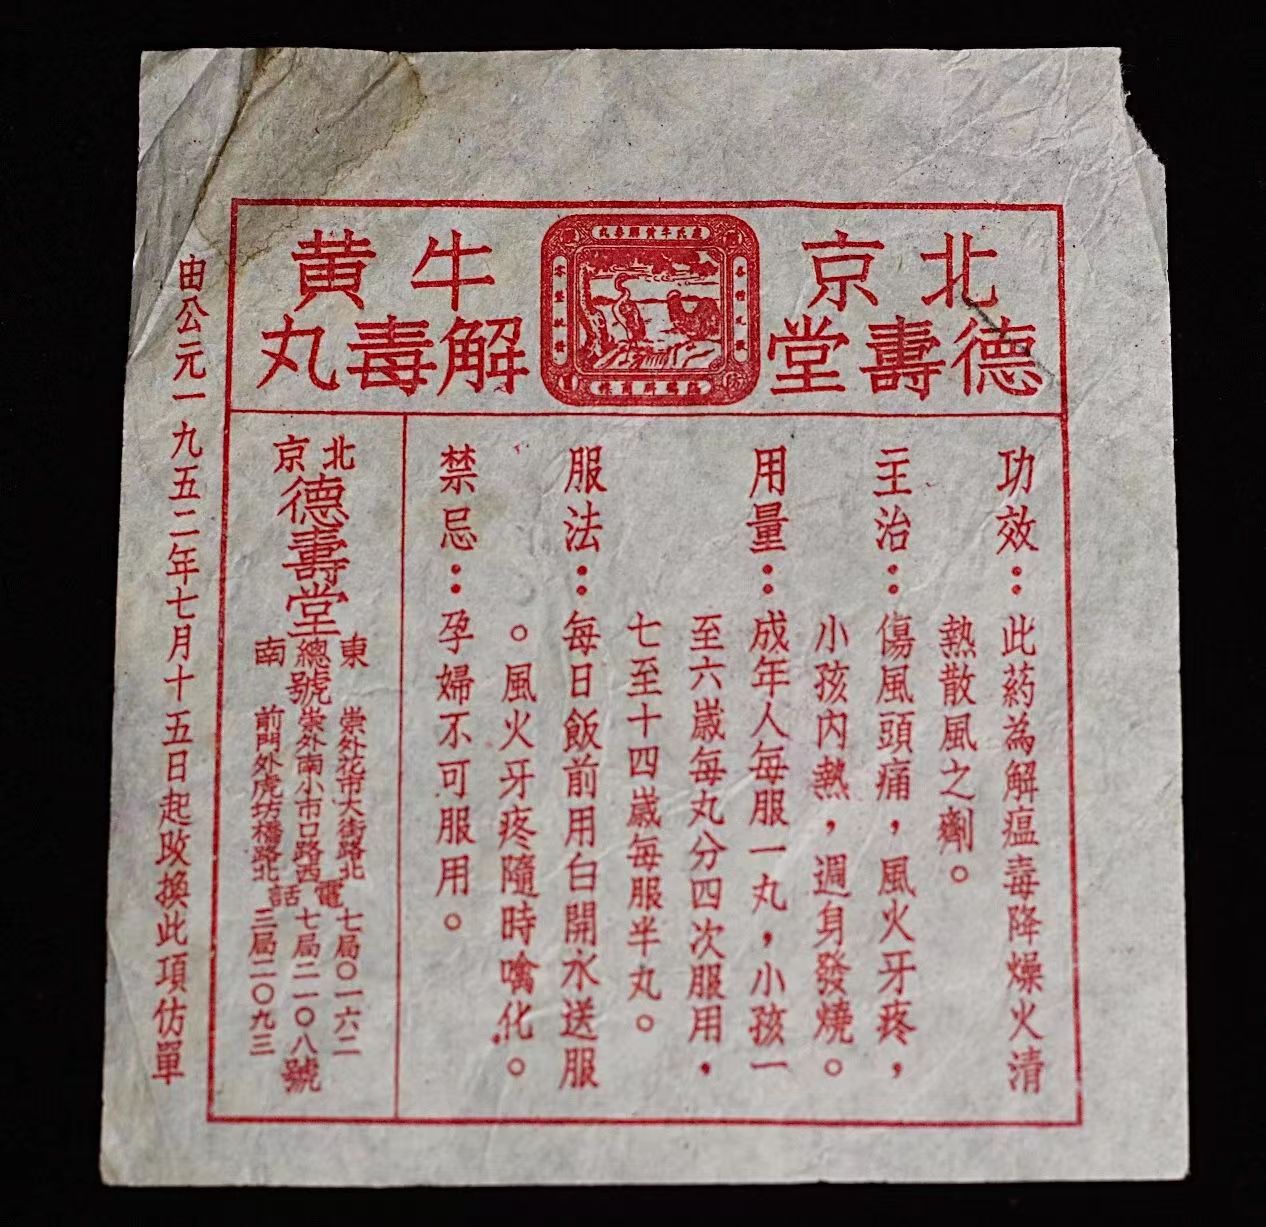 北京
德壽堂
牛黃
解毒丸
功效：此葯為解瘟毒降燥火清
熱散風之劑。
主治：傷風頭痛，風火牙疼，
小孩內熱，週身發燒。
用量：成年人每服一丸，小孩一
至六嵗每丸分四次服用，
七至十四嵗每服半丸。
服法：每日飯前用白開水送服
。風火牙疼隨時噙化。
禁忌：孕婦不可服用。
北京
德壽堂
東 崇外花市大街路北
總號 崇外南小市口路西
南 前門外虎坊橋路北
電話
七局〇一六二
七局二一〇八號
三局二〇九三
由公元一九五二年七月十五日起改換此項仿單